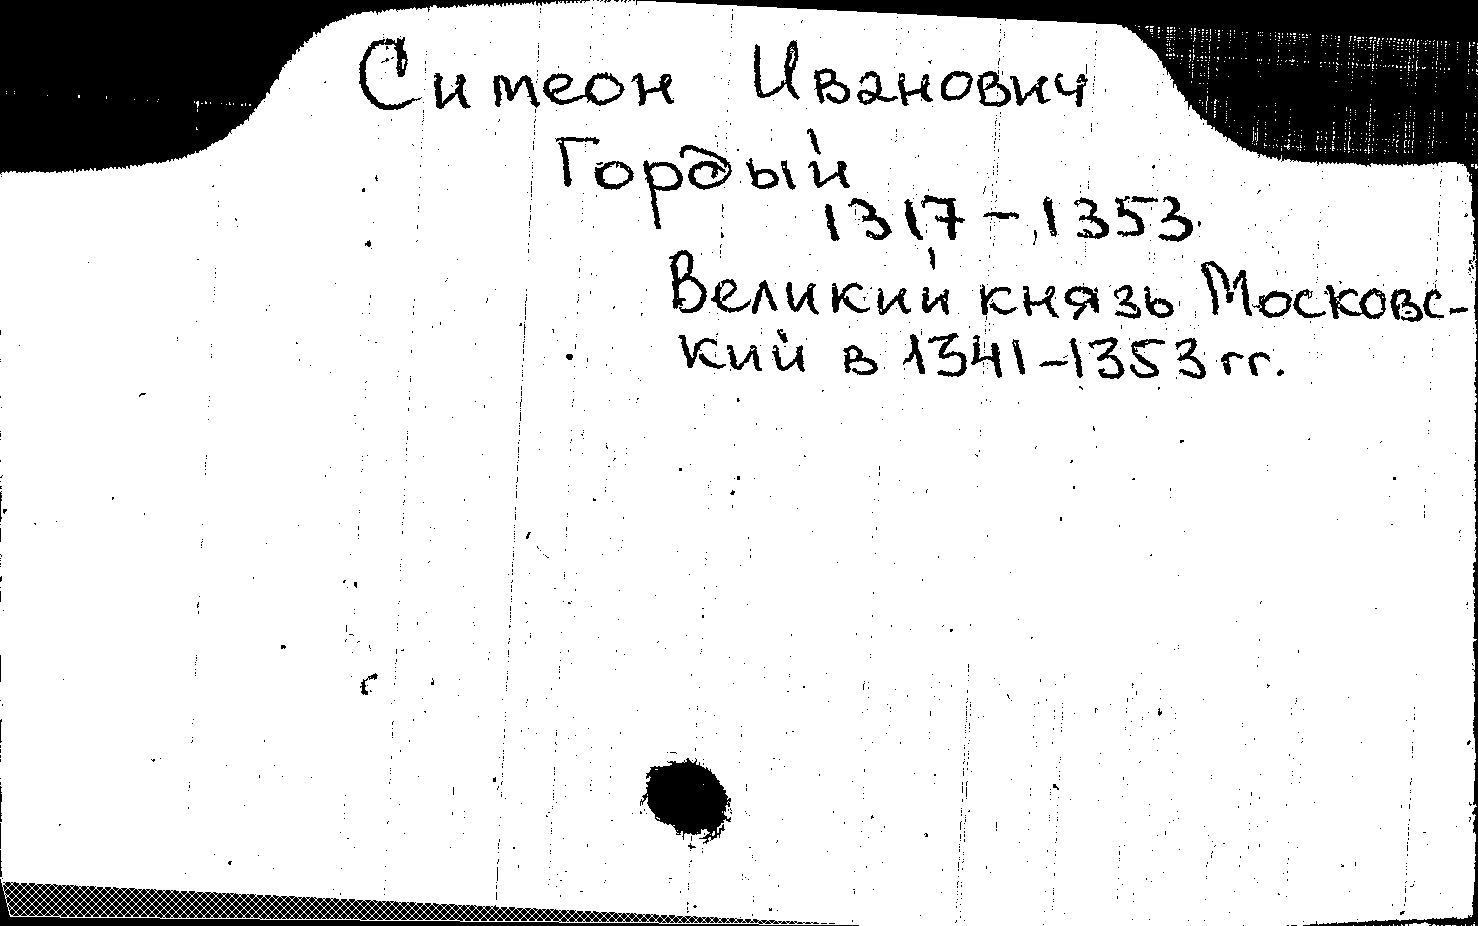 Симеон Иванович
Гордый
1317-1353
Великий князь Московс-
кий в 1341-1353 гг.